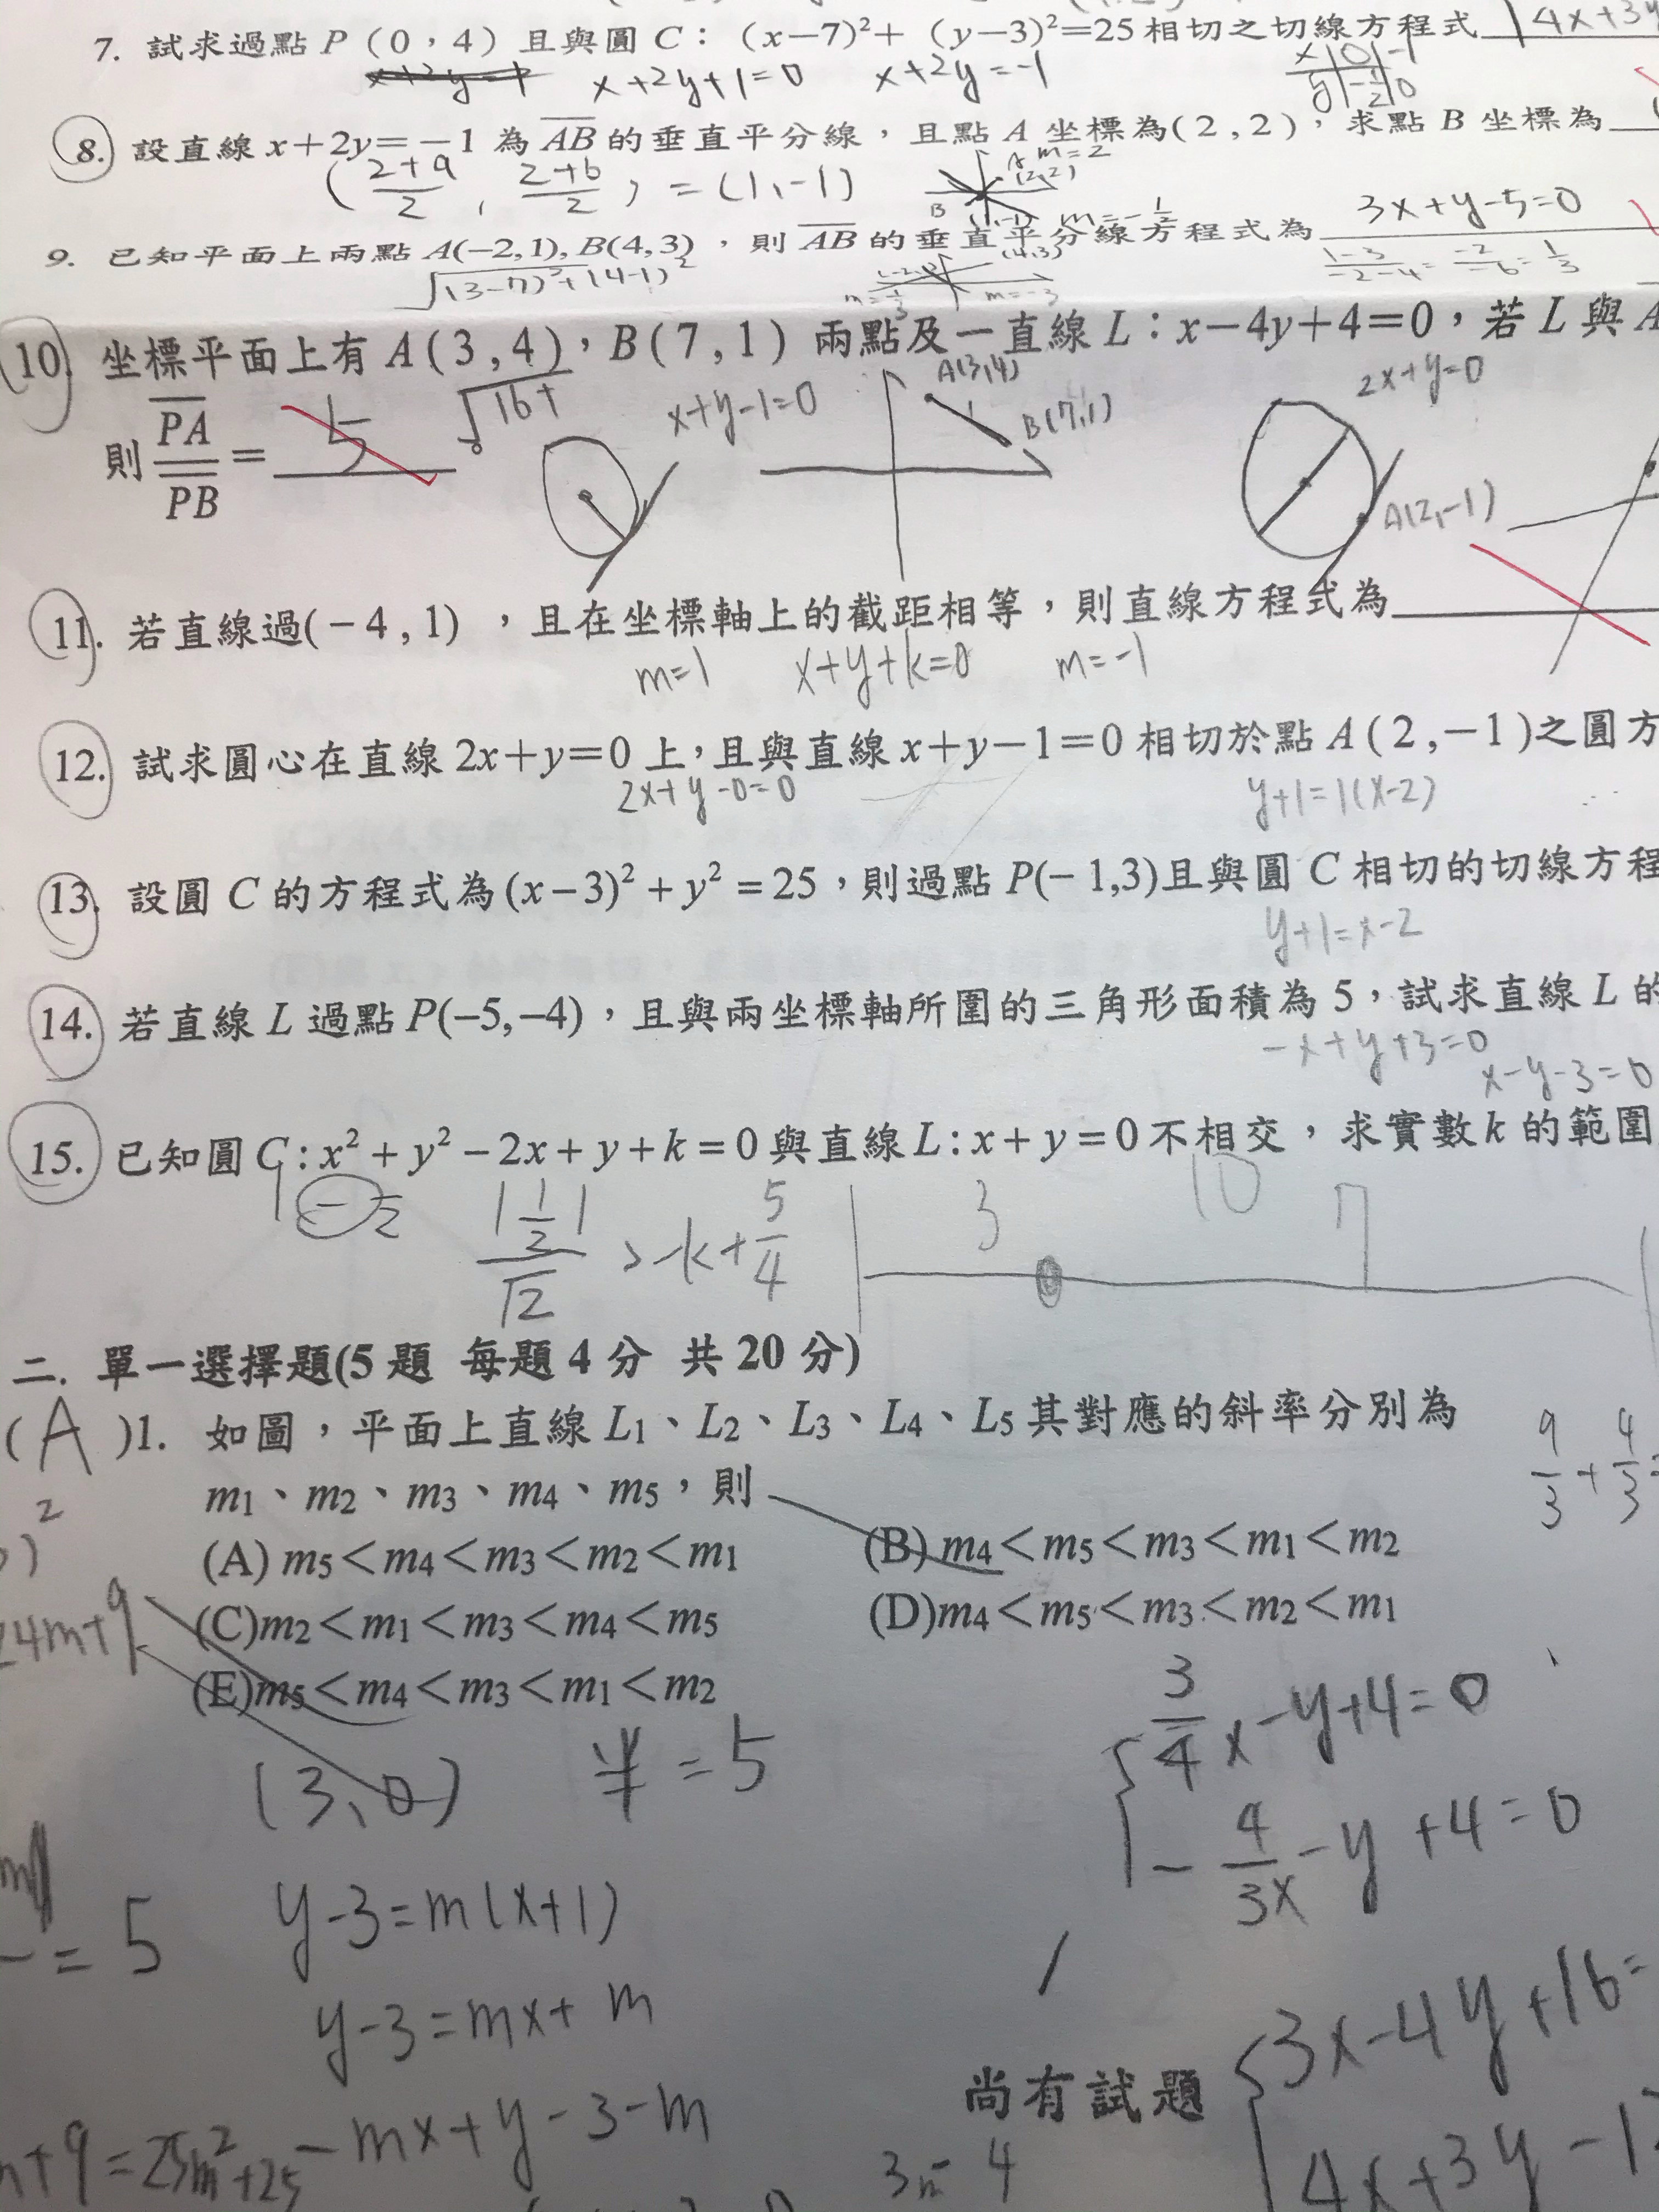 7. 試求過點 P（0，4）且與圓 C：（x−7）²+（y−3）²=25 相切之切線方程式 4x+3y
x+2y+1=0 x+2y=-1
8. 設直線 x+2y=−1 為 AB 的垂直平分線，且點 A 坐標為(2,2)，求點 B 坐標為
(2+a/2, 2+b/2) = (1,-1)
A(2,2) m=2
B (1,-1) m=-1/2
9. 已知平面上兩點 A(−2,1), B(4,3)，則 AB 的垂直平分線方程式為 3x+y-5=0
√(3-7)²+(4-1)²
m=1/3 m=-3
1-3/-2-4 = -2/-6 = 1/3
10. 坐標平面上有 A(3,4)，B(7,1) 兩點及一直線 L：x−4y+4=0，若 L 與 A
則 PA/PB = 5
√16+
x+y-1=0
A(3,4)
B(7,1)
2x+y=0
A(2,-1)
11. 若直線過(−4,1)，且在坐標軸上的截距相等，則直線方程式為
m=1 x+y+k=0 m=-1
12. 試求圓心在直線 2x+y=0 上，且與直線 x+y−1=0 相切於點 A(2,−1)之圓方
2x+y-0=0 y+1=1(x-2)
13. 設圓 C 的方程式為(x−3)²+y²=25，則過點 P(−1,3)且與圓 C 相切的切線方程
y+1=x-2
14. 若直線 L 過點 P(−5,−4)，且與兩坐標軸所圍的三角形面積為 5，試求直線 L 的
-x+y+3=0
x-y-3=0
15. 已知圓 C：x²+y²−2x+y+k=0 與直線 L：x+y=0 不相交，求實數 k 的範圍
|1/2|/√2 > -k+5/4
3 10 7
二. 單一選擇題(5 題 每題 4 分 共 20 分)
( A )1. 如圖，平面上直線 L1、L2、L3、L4、L5 其對應的斜率分別為
m1、m2、m3、m4、m5，則
(A) m5<m4<m3<m2<m1 (B) m4<m5<m3<m1<m2
(C)m2<m1<m3<m4<m5 (D)m4<m5<m3<m2<m1
(E)m5<m4<m3<m1<m2
9/3+4/3=
24m+9
(3,0) 半=5
3/4x-y+4=0
-4/3x-y+4=0
= 5
y-3=m(x+1)
y-3=mx+m
3x-4y+16=
尚有試題
+9=25m²+25
-mx+y-3-m
4x+3y-12